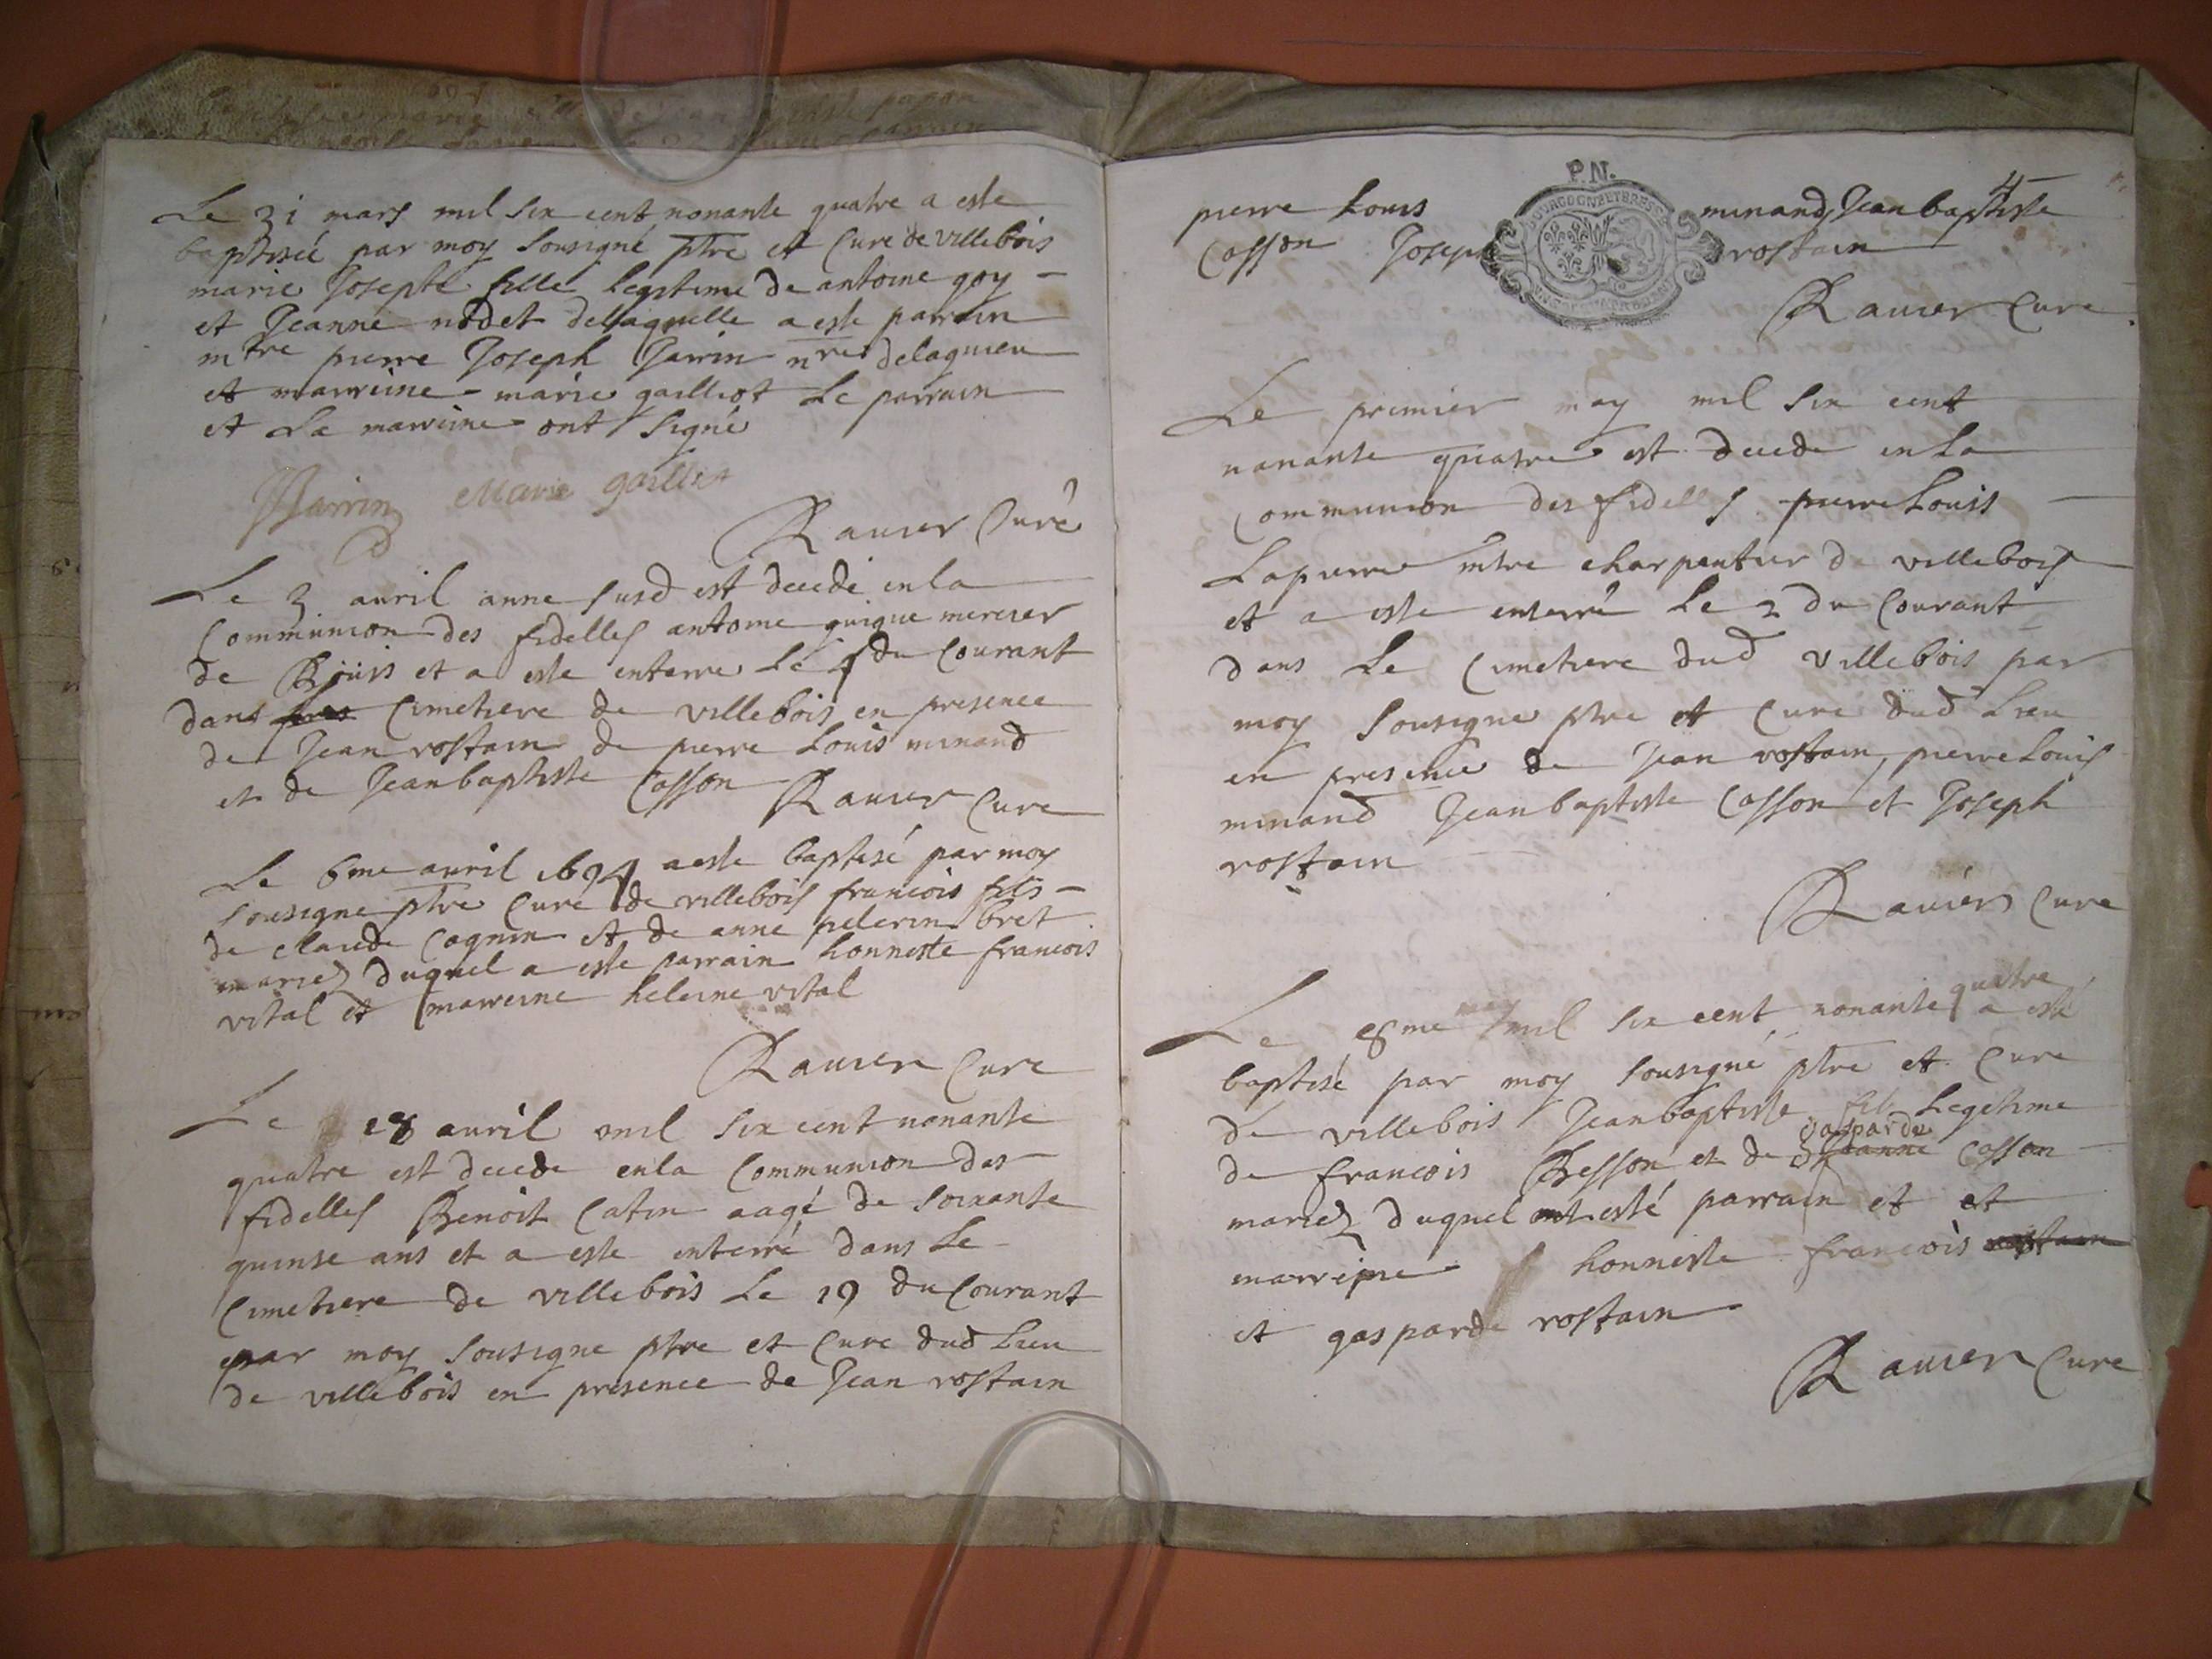 Le 31 mars mil six cent nonante quatre a este
baptiseé par moy sousigné ptre et Cure de villebois
marie Josepte fille legitime de antoine goy
et Jeanne nodet dellaquelle a este parrain
mtre pierre Joseph Jarrin nre delagnieu
et marreine marie galliot Le parrain
et La marreine ont signé
Jarrin Marie galliot
Rauier Curé
Le 3 auril anne susd est decedé en la
Communion des fidelles antoine guigue mercier
de Bouis et a este enterre le 4 du Courant
dans Cimetiere de villebois en presence
de Jean rostain de pierre Louis minand
et de Jeanbaptiste Casson Rauier Cure
Le 6me auril 1694 a este baptisé par moy
sousigne ptre Curé de villebois francois fils
de claude Cagnin et de anne pelerin bret
mariez duquel a este parrain honneste francois
vital et marreine heleine vital
Rauier Cure
Le 18 auril mil six cent nonante
quatre est decede en la Communion des
fidelles Benoit Catin aagé de soixante
quinse ans et a este enterré dans Le
Cimetiere de villebois Le 19 du Courant
par moy sousigne ptre et Cure dud Lieu
de villebois en presence de Jean rostain
4
P.N.
pierre Louis minand Jeanbaptiste
Casson Joseph rostain
Rauier Cure
Le premier may mil six cent
nonante quatre est decede en La
Communion des fidelles pierre Louis
Lapierre mtre charpentier de villebois
et a este enterré Le 2 du Courant
dans Le Cimetiere dud villebois par
moy sousigne ptre et Cure dud Lieu
en presence de Jean rostain, pierre Louis
minand Jeanbaptiste Casson et Joseph
rostain
Rauier Cure
Le 8me may mil six cent nonante quatre a esté
baptisé par moy sousigné ptre et Cure
de villebois Jeanbaptiste fils Legitime
de francois Besson et de Jeanne gasparde Casson
mariez duquel ont esté parrain et et
marreine honneste francois rostain
et gasparde rostain
Rauier Cure